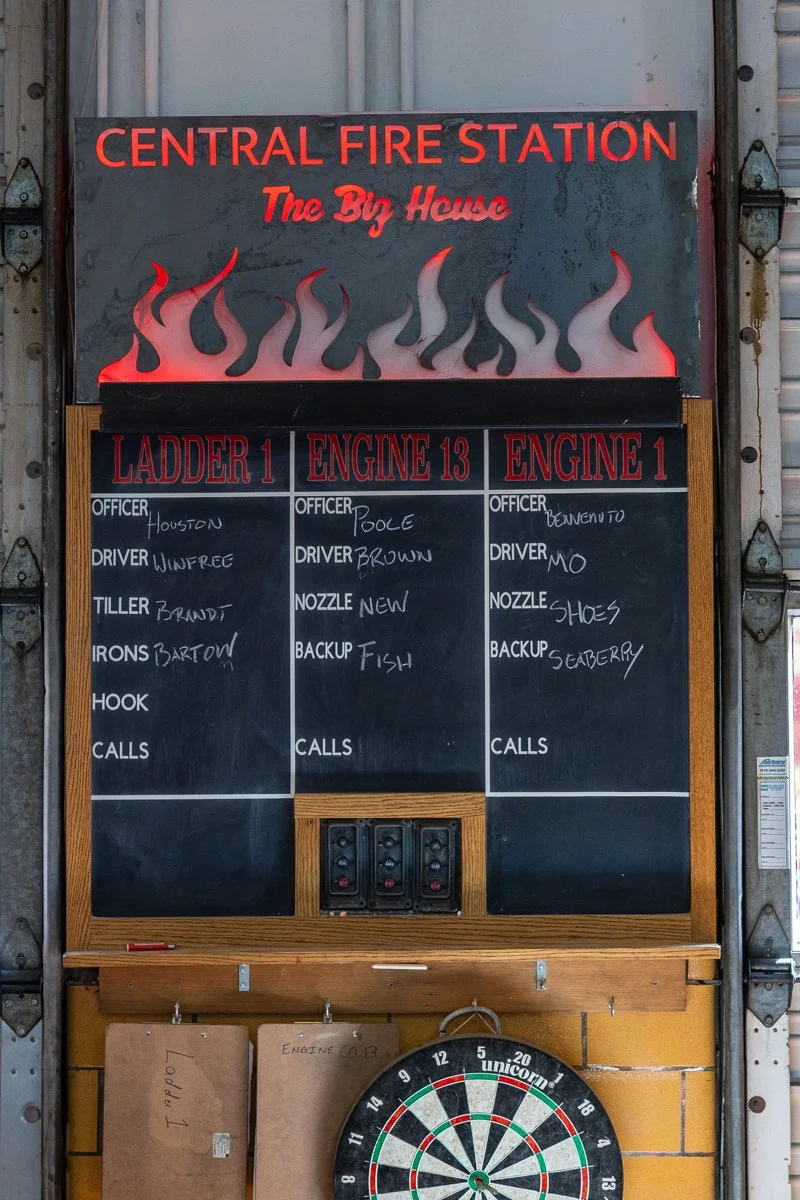 CENTRAL FIRE STATION
The Big House
LADDER 1
OFFICER HOUSTON
DRIVER WINFREE
TILLER BRANDT
IRONS BARTOW
HOOK
CALLS
ENGINE 13
OFFICER POOLE
DRIVER BROWN
NOZZLE NEW
BACKUP FISH
CALLS
ENGINE 1
OFFICER BENVENUTO
DRIVER MO
NOZZLE SHOES
BACKUP SEABERRY
CALLS
Ladder 1
ENGINE CO. 13
unicorn
8 11 14 9 12 5 20 1 18 4 13